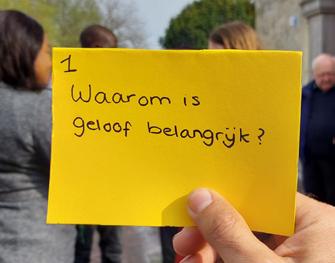 1
Waarom is
geloof belangrijk?